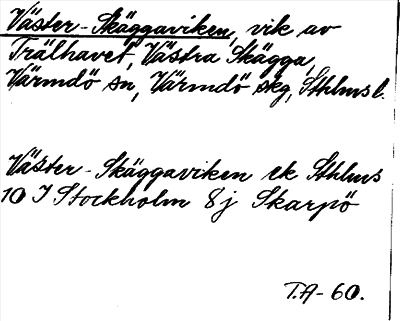 Väster-Skäggaviken, vik av
Trälhavet, Västra Skägga,
Värmdö sn, Värmdö skg, Sthlms l.
Väster-Skäggaviken ek Sthlms
10 I Stockholm 8j Skarpö
T.A-60.